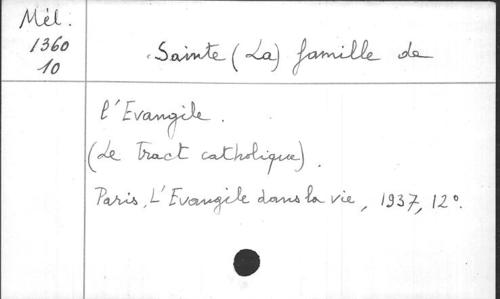 Mél:
1360
10
Sainte (La) famille de
l'Evangile.
(Le Tract catholique).
Paris, L'Evangile dans la vie, 1937, 12°.